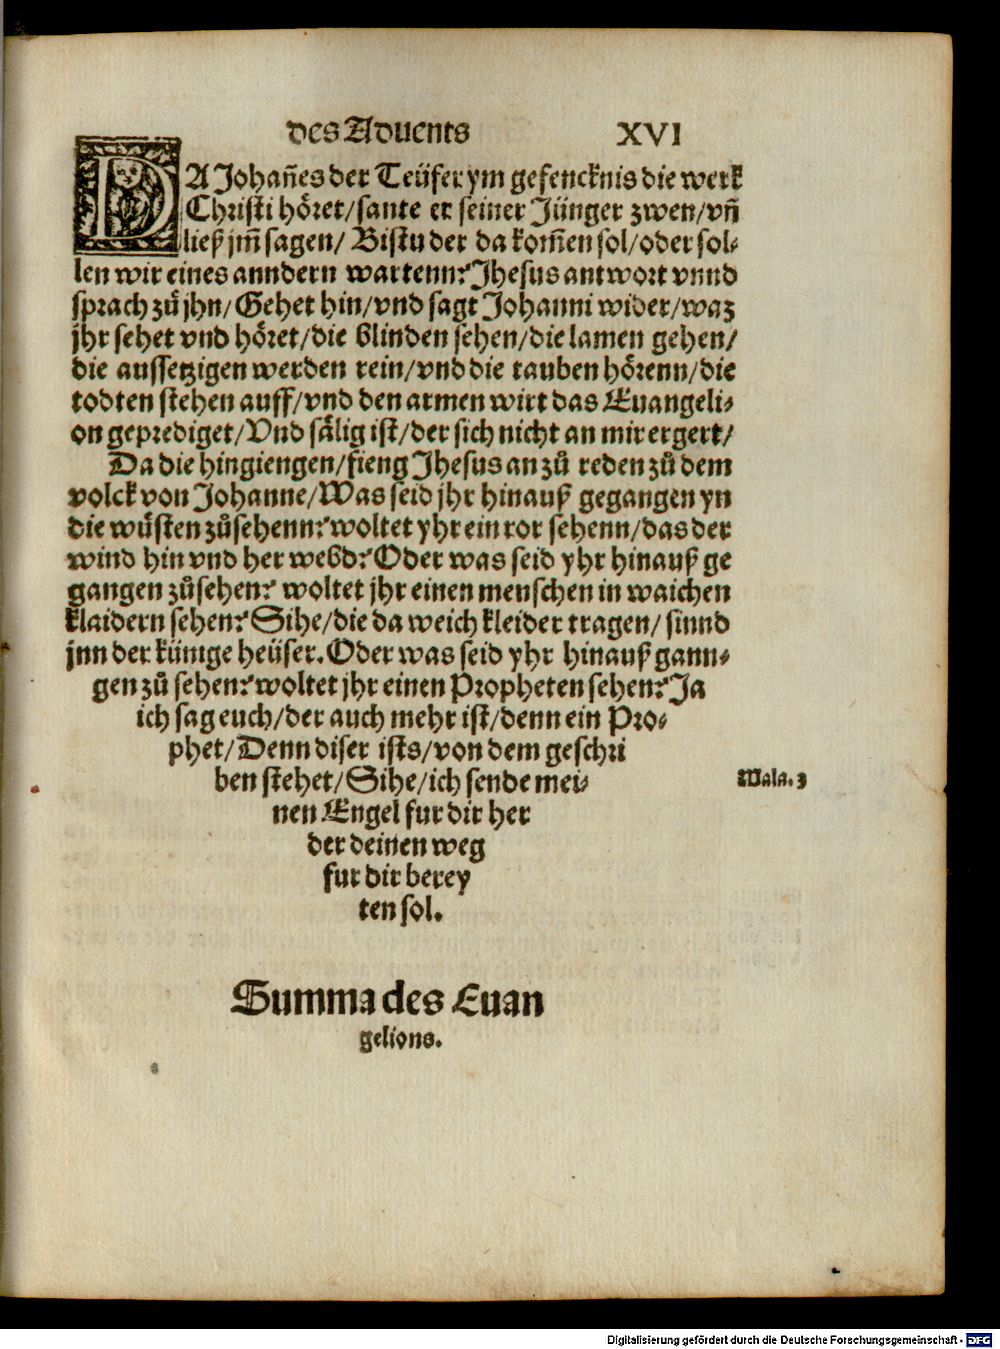 des Aduents XVI
DA Johañes der Teüfer ym gefencknis die werk
Christi höret/sante er seiner Jünger zwen/vñ
ließ jm̃ sagen/ Bistu der da kom̃en sol/oder sol⸗
len wir eines anndern wartenn? Jhesus antwort vnnd
sprach zů jhn/Gehet hin/vnd sagt Johanni wider/waz
jhr sehet vnd höret/die blinden sehen/die lamen gehen/
die aussetzigen werden rein/vnd die tauben hörenn/die
todten stehen auff/vnd den armen wirt das Euangeli⸗
on geprediget/Vnd sälig ist/der sich nicht an mir ergert/
Da die hingiengen/fieng Jhesus an zů reden zů dem
volck von Johanne/Was seid jhr hinauß gegangen yn
die wüsten zůsehenn? woltet yhr ein ror sehenn/das der
wind hin vnd her webd? Oder was seid yhr hinauß ge
gangen zůsehen? woltet jhr einen menschen in waichen
klaidern sehen? Sihe/die da weich kleider tragen/ sinnd
jnn der künige heüser. Oder was seid yhr hinauß gann⸗
gen zů sehen? woltet jhr einen Propheten sehen? Ja
ich sag euch/der auch mehr ist/denn ein Pro⸗
phet/Denn diser ists/von dem geschri
ben stehet/Sihe/ich sende mei⸗
Mala. 3
nen Engel fur dir her
der deinen weg
fur dir berey
ten sol.
Summa des Euan
gelions.
Digitalisierung gefördert durch die Deutsche Forschungsgemeinschaft - DFG